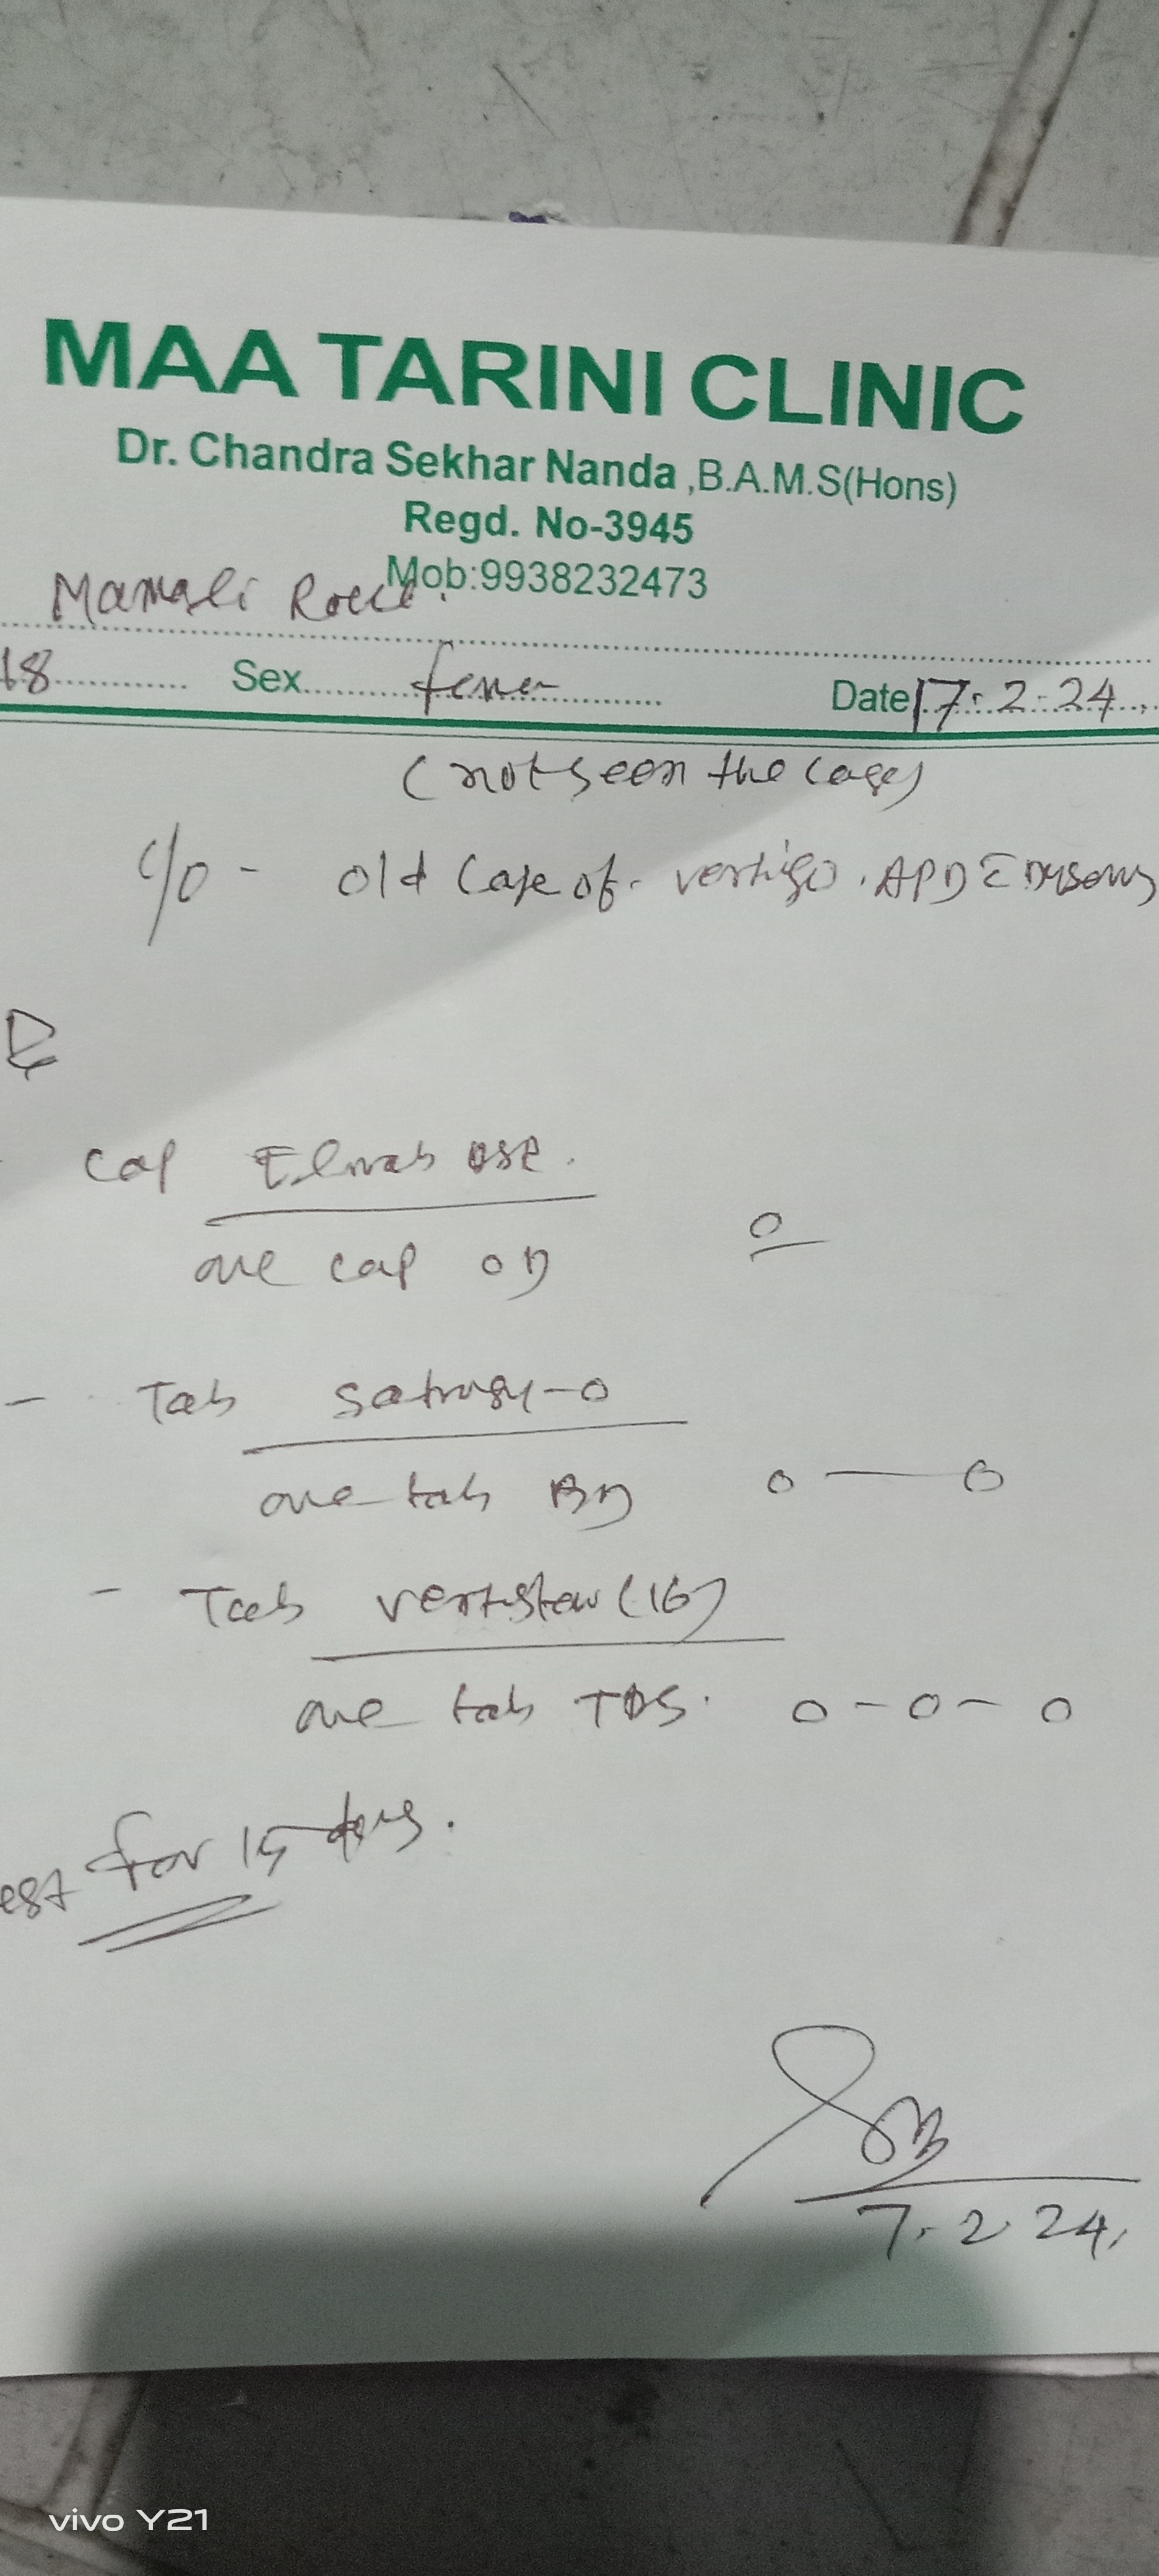 MAA TARINI CLINIC
Dr. Chandra Sekhar Nanda ,B.A.M.S(Hons)
Regd. No-3945
Mob:9938232473
Mamali
18 Sex Date 17.2.24
(not seen the case)
c/o - old case of vertigo. APD
Cap
one cap OD O
- Tab
one tab BD O — O
- Tab (16)
one tab TDS. O - O - O
for 15 days.
7.2.24
vivo Y21